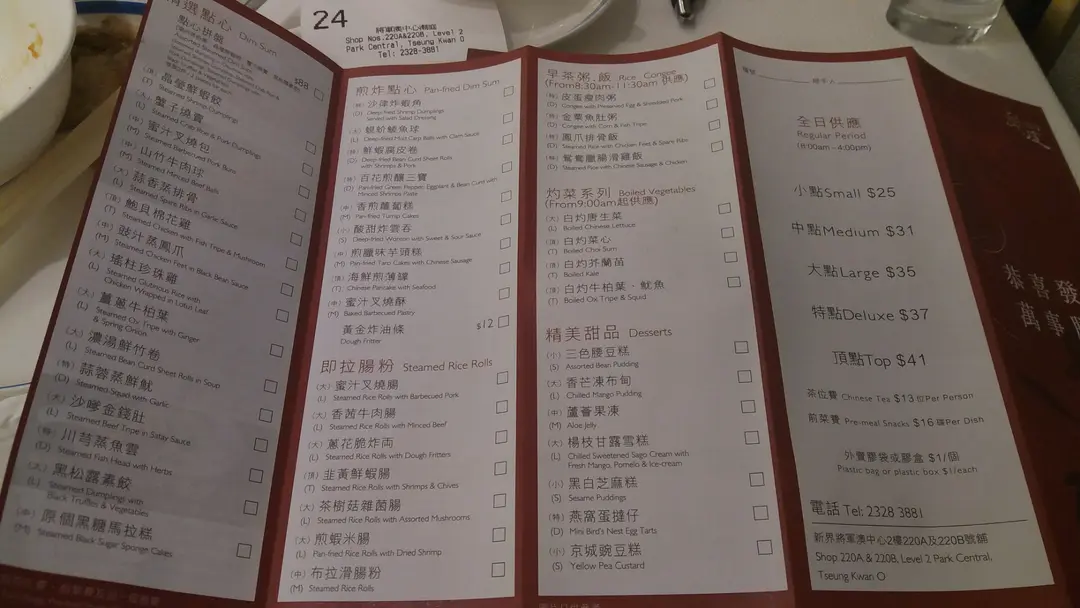 24
將軍澳中心商場
Shop Nos.220A&220B, Level 2
Park Central, Tseung Kwan O
Tel: 2328-3881
精選點心 Dim Sum
點心拼盤
$88
(頂) 晶瑩鮮蝦餃
(T) Steamed Shrimp Dumplings
(大) 蟹子燒賣
(L) Steamed Crab Roe & Pork Dumplings
(中) 蜜汁叉燒包
(M) Steamed Barbecued Pork Buns
(中) 山竹牛肉球
(M) Steamed Minced Beef Balls
(大) 蒜香蒸排骨
(L) Steamed Spare Ribs in Garlic Sauce
(頂) 鮑貝棉花雞
(T) Steamed Chicken with Fish Tripe & Mushroom
(中) 豉汁蒸鳳爪
(M) Steamed Chicken Feet in Black Bean Sauce
(大) 瑤柱珍珠雞
(L) Steamed Glutinous Rice with
Chicken Wrapped in Lotus Leaf
(大) 薑蔥牛柏葉
(L) Steamed Ox Tripe with Ginger
& Spring Onion
(大) 濃湯鮮竹卷
(L) Steamed Bean Curd Sheet Rolls in Soup
(特) 蒜蓉蒸鮮魷
(D) Steamed Squid with Garlic
(大) 沙嗲金錢肚
(L) Steamed Beef Tripe in Satay Sauce
(特) 川芎蒸魚雲
(D) Steamed Fish Head with Herbs
(大) 黑松露素餃
(L) Steamed Dumplings with
Black Truffles & Vegetables
(中) 原個黑糖馬拉糕
(M) Steamed Black Sugar Sponge Cakes
煎炸點心 Pan-fried Dim Sum
(特) 沙律炸蝦角
(D) Deep-fried Shrimp Dumplings
Served with Salad Dressing
(大) 蜆蚧鯪魚球
(L) Deep-fried Mud Carp Balls with Clam Sauce
(特) 鮮蝦腐皮卷
(D) Deep-fried Bean Curd Sheet Rolls
with Shrimps & Pork
(特) 百花煎釀三寶
(D) Pan-fried Green Pepper, Eggplant & Bean Curd with
Minced Shrimps Paste
(中) 香煎蘿蔔糕
(M) Pan-fried Turnip Cakes
(小) 酸甜炸雲吞
(S) Deep-fried Wonton with Sweet & Sour Sauce
(中) 煎臘味芋頭糕
(M) Pan-fried Taro Cakes with Chinese Sausage
(頂) 海鮮煎薄罉
(T) Chinese Pancake with Seafood
(中) 蜜汁叉燒酥
(M) Baked Barbecued Pastry
黃金炸油條 $12
Dough Fritter
即拉腸粉 Steamed Rice Rolls
(大) 蜜汁叉燒腸
(L) Steamed Rice Rolls with Barbecued Pork
(大) 香茜牛肉腸
(L) Steamed Rice Rolls with Minced Beef
(大) 蔥花脆炸両
(L) Steamed Rice Rolls with Dough Fritters
(頂) 韭黃鮮蝦腸
(T) Steamed Rice Rolls with Shrimps & Chives
(大) 茶樹菇雜菌腸
(L) Steamed Rice Rolls with Assorted Mushrooms
(大) 煎蝦米腸
(L) Pan-fried Rice Rolls with Dried Shrimp
(中) 布拉滑腸粉
(M) Steamed Rice Rolls
早茶粥.飯 Rice Congee
(From8:30am-11:30am 供應)
(特) 皮蛋瘦肉粥
(D) Congee with Preserved Egg & Shredded Pork
(特) 金粟魚肚粥
(D) Congee with Corn & Fish Tripe
(特) 鳳爪排骨飯
(D) Steamed Rice with Chicken Feet & Spare Ribs
(特) 鴛鴦臘腸滑雞飯
(D) Steamed Rice with Chinese Sausage & Chicken
灼菜系列 Boiled Vegetables
(From9:00am起供應)
(大) 白灼唐生菜
(L) Boiled Chinese Lettuce
(頂) 白灼菜心
(T) Boiled Choi Sum
(頂) 白灼芥蘭苗
(T) Boiled Kale
(頂) 白灼牛柏葉、魷魚
(T) Boiled Ox Tripe & Squid
精美甜品 Desserts
(小) 三色腰豆糕
(S) Assorted Bean Pudding
(大) 香芒凍布甸
(L) Chilled Mango Pudding
(中) 蘆薈果凍
(M) Aloe Jelly
(大) 楊枝甘露雪糕
(L) Chilled Sweetened Sago Cream with
Fresh Mango, Pomelo & Ice-cream
(小) 黑白芝麻糕
(S) Sesame Puddings
(特) 燕窩蛋撻仔
(D) Mini Bird's Nest Egg Tarts
(小) 京城豌豆糕
(S) Yellow Pea Custard
全日供應
Regular Period
(8:00am - 4:00pm)
小點Small $25
中點Medium $31
大點Large $35
特點Deluxe $37
頂點Top $41
茶位費 Chinese Tea $13位Per Person
前菜費 Pre-meal Snacks $16碟Per Dish
外賣膠袋或膠盒 $1/個
Plastic bag or plastic box $1/each
電話 Tel: 2328 3881
新界將軍澳中心2樓220A及220B號鋪
Shop 220A & 220B, Level 2 Park Central,
Tseung Kwan O
恭喜發
萬事